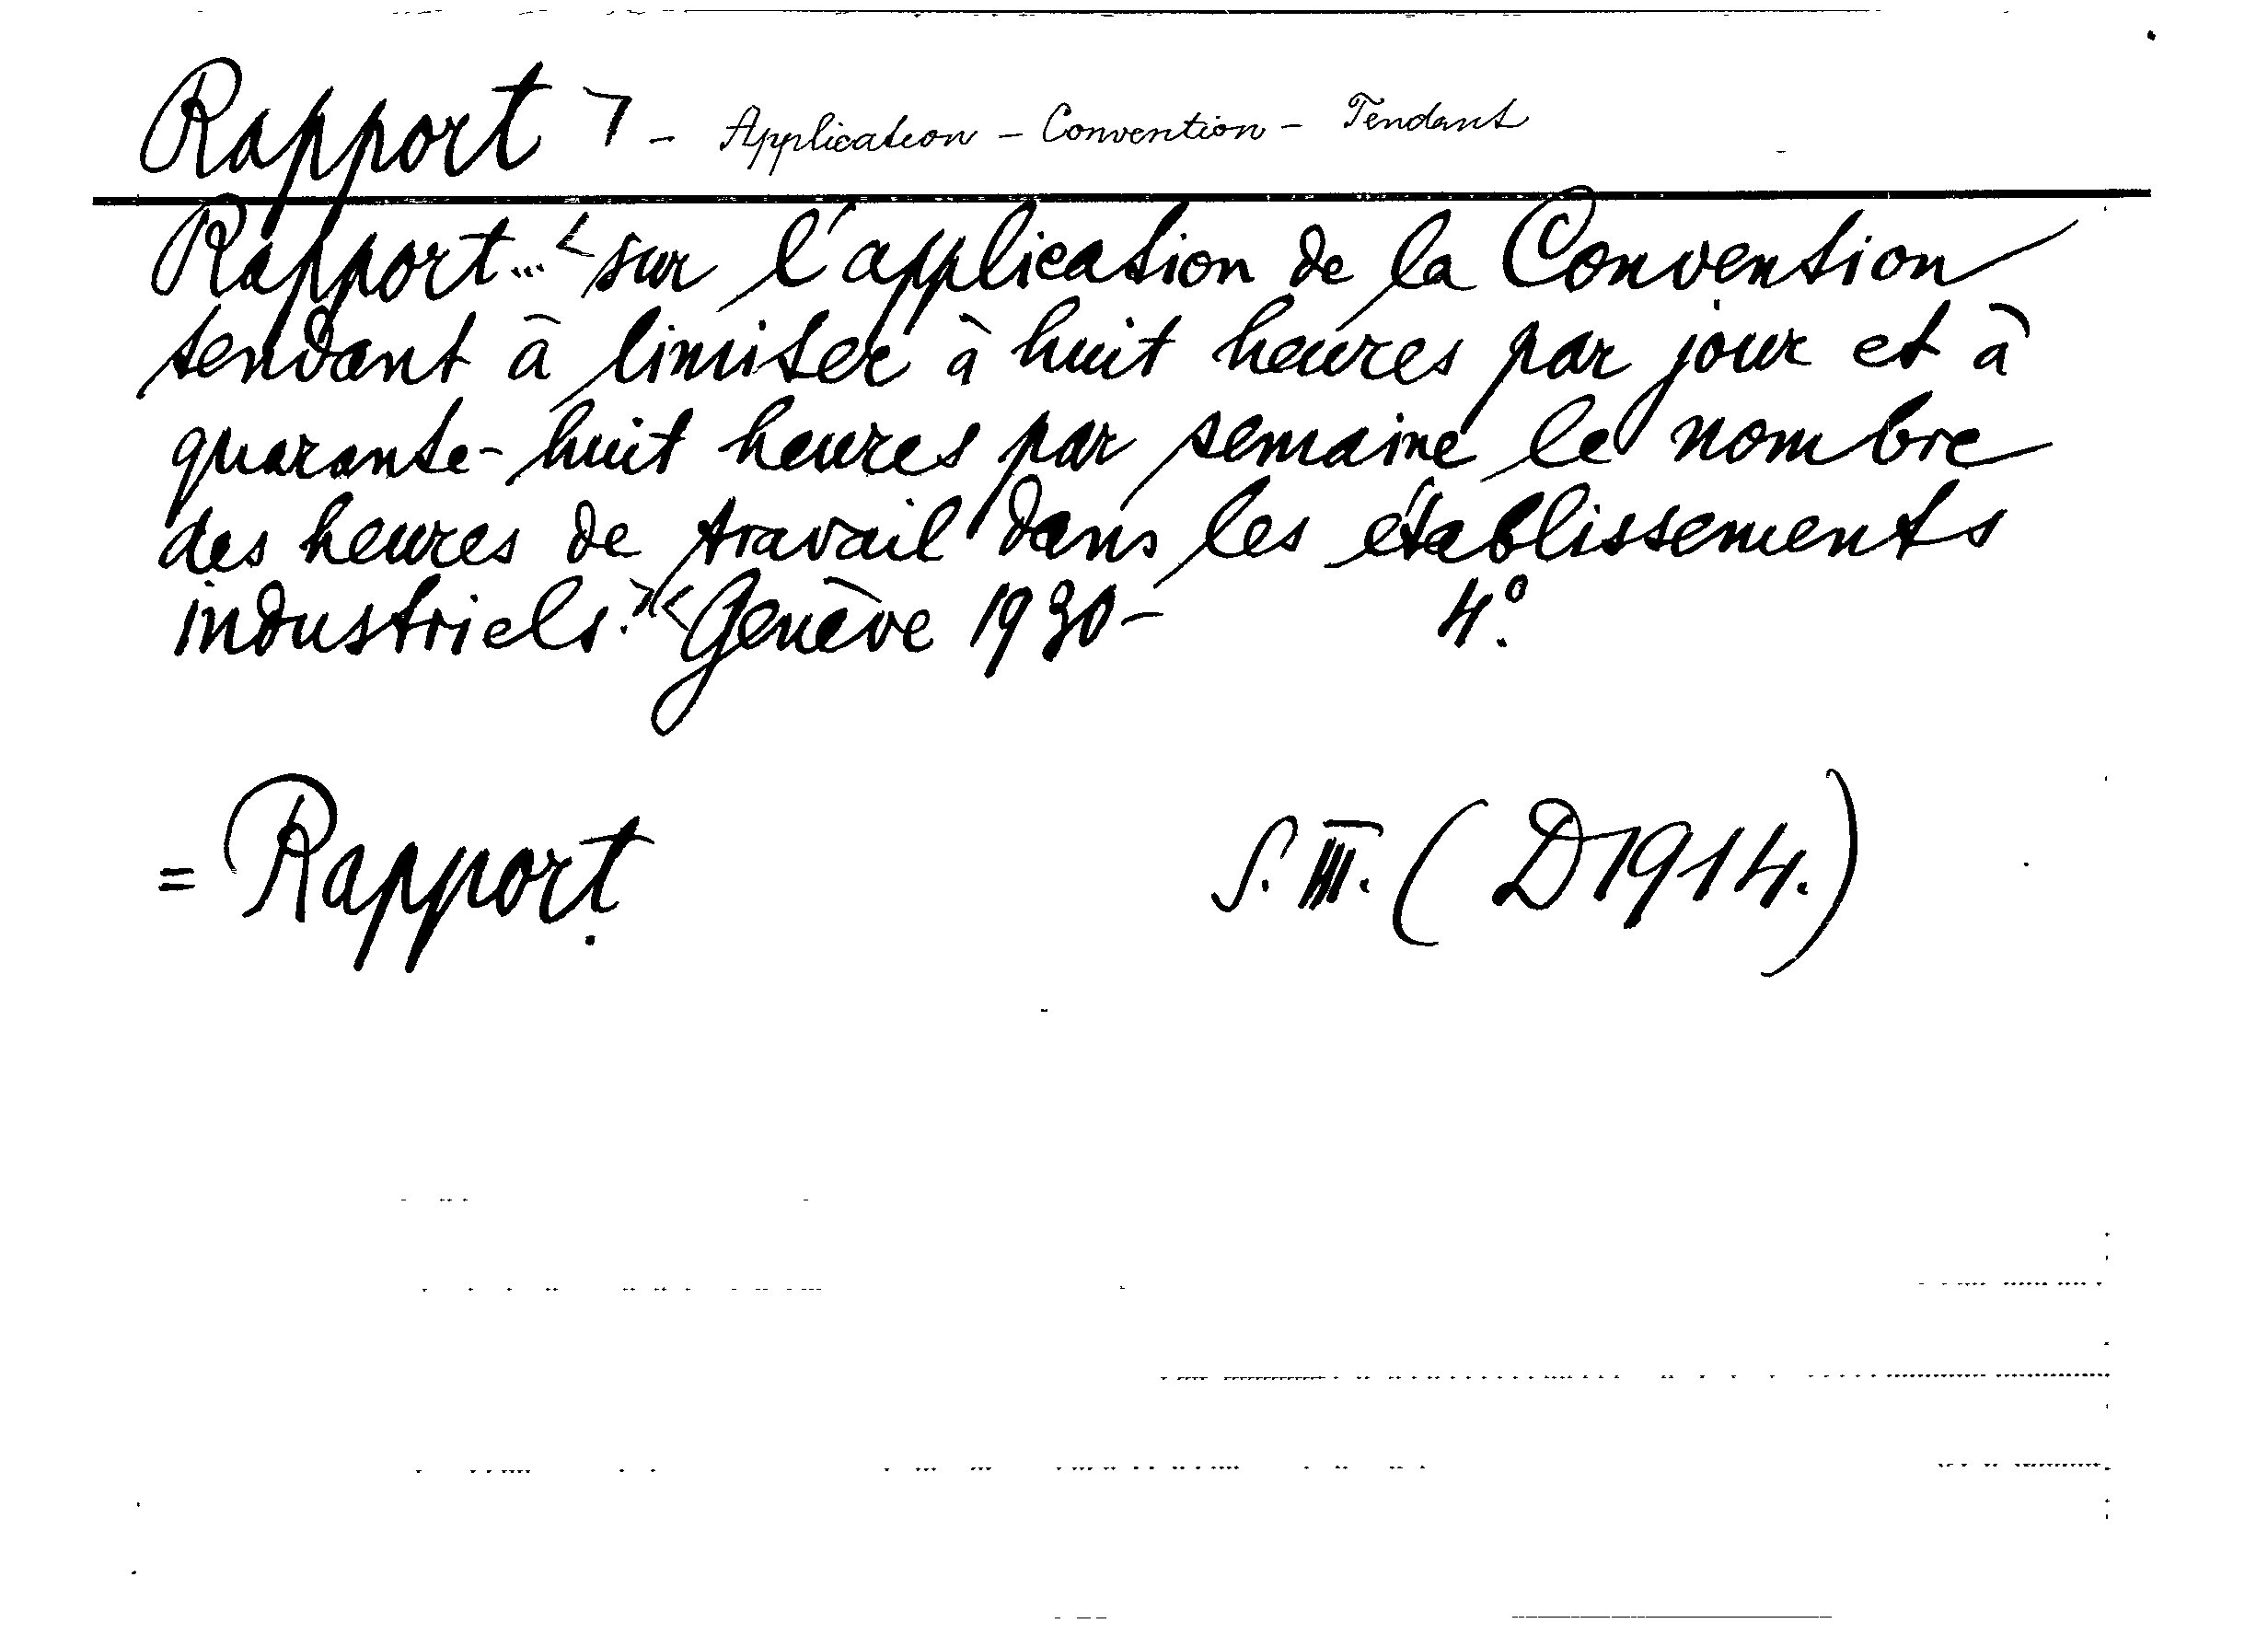 Rapport 7 - Application - Convention - Tendant
Rapport... < sur l'application de la Convention
tendant à limiter à huit heures par jour et à
quarante-huit heures par semaine le nombre
des heures de travail dans les établissements
industriels. >< Genève 1930- 4°.
= Rapport. S. III. (D1914.)